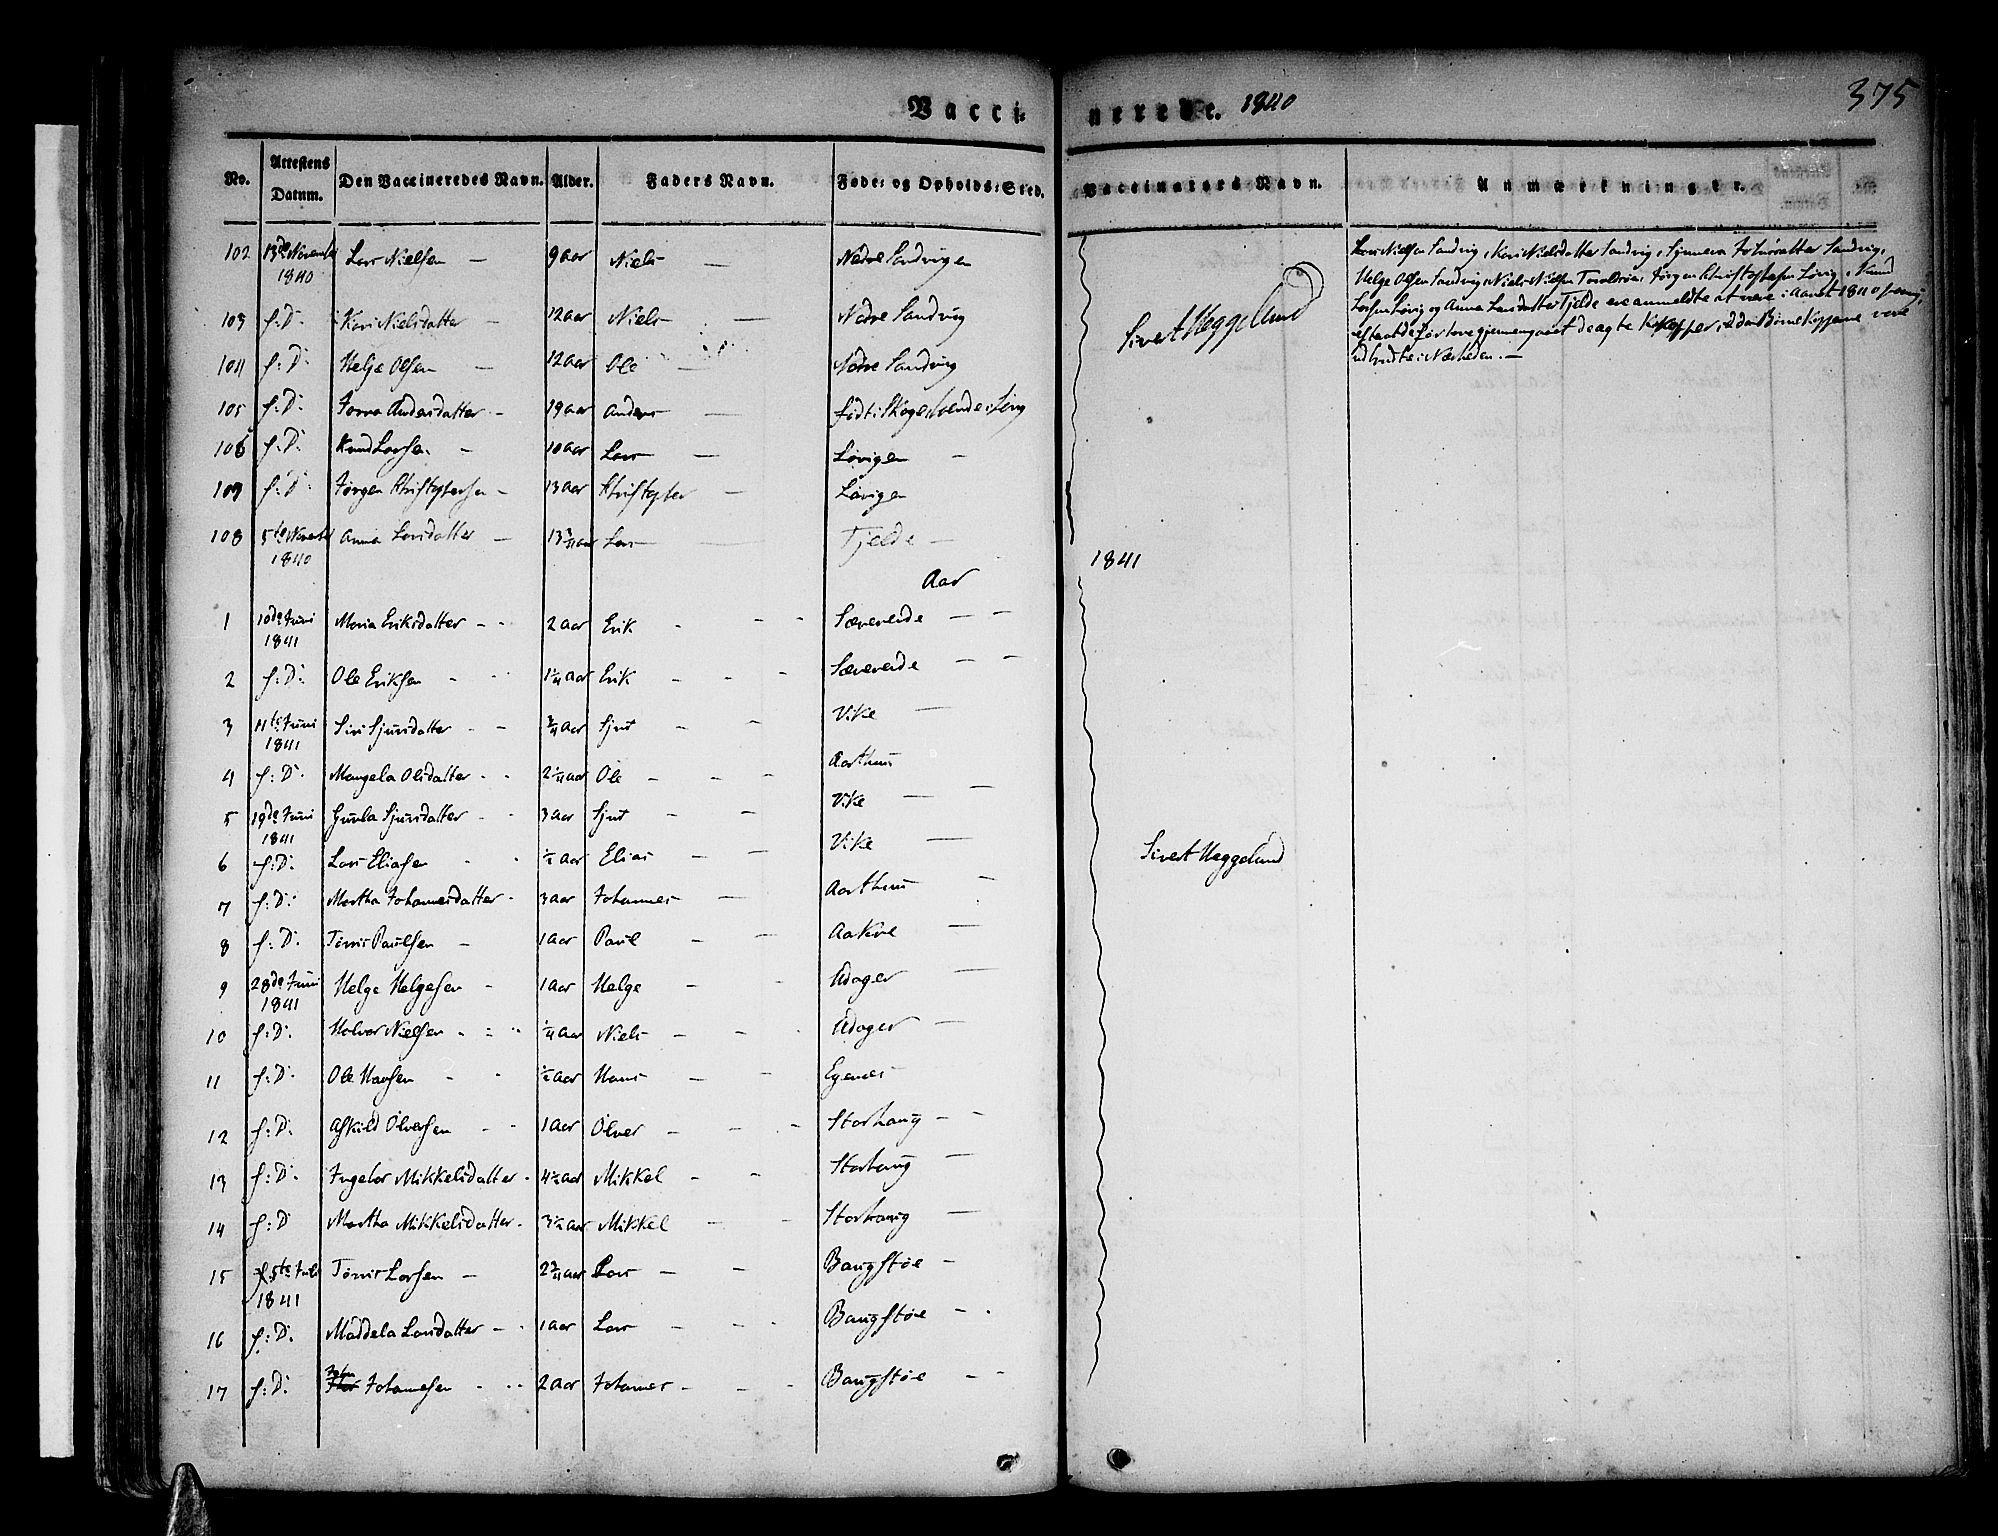 375
Vaccinerede. 1840
No. Attestens Datum. Den Vaccineredes Navn. Alder. Faders Navn. Føde- og Opholds-Sted. Vaccinateurs Navn. Anmærkninger.
102 13de Novemb 1840 Lars Nielsen — 9 aar Niels — Nedre Sandvigen
103 s: D: Kari Nielsdatter — 12 aar Niels — Nedre Sandvig
104 s: D: Helje Olsen — 12 aar Ole — Nedre Sandvig
105 s: D: Andersdatter — 19 aar Anders — født i
106 s: D: Knud Larsen — 10 aar Lars — Løvigen —
107 s: D: Jørgen Khristophersen — 13 aar Khristopher — Løvigen
108 5te Novembr 1840 Anna Larsdatter — 13 3/4 aar Lars — Tjelde —
Sivert Heggelund
Lars Nielsen Sandvig, Kari Nielsdatter Sandvig, Synneva Sandvig,
Helge Olsen Sandvig, Niels Nielsen Jørgen Khristophersen Løvig, Knud
Larsen Løvig og Anna Larsdatter Tjelde ere anmeldte at være i Aaret 1840
efterat de før have gjennemgaaet de ægte Kopper, da Børnekopperne vare
udbrudte i Nærheden. —
Aar 1841
1 10de Juni 1841 Maria Eriksdatter - - 2 aar Erik - - - Sævereide — —
2 s: D: Ole Eriksen - - 1 1/4 aar Erik - - - Sævereide — —
3 11te Juni 1841 Siri Sjursdatter - - 3/4 aar Sjur - — Vike —
4 s: D: Mangela Olsdatter - - 2 1/4 aar Ole — - — Aarthun
5 19de Juni 1841 Gunla Sjursdatter - - 3 aar Sjur — - Vike — —
6 s: D: Lars Eliasen - - 1/2 aar Elias — — Vike —
7 s: D: Martha Johannesdatter - 3 aar Johannes — Aarthun —
8 s: D: Tørris Paulsen — 1 aar Paul - — Aakre —
9 28de Juni 1841 Helge Helgesen - 1 aar Helge - - Udager —
10 s: D: Halvor Nielsen - = - 1/4 aar Niels — - Udager —
11 s: D: Ole Hansen - - 1/2 aar Hans — - Egenes —
12 s: D: Askild Olversen - - 1 aar Olver - — - Storhaug — —
13 s: D: Ingebor Mikkelsdatter - 4 1/2 aar Mikkel - - Storhaug —
14 s: D Martha Mikkelsdatter - 3 1/2 aar Mikkel - - Storhaug —
15 5te Juli 1841 Tørris Larsen — 2 3/4 aar Lars — - Baugstøe —
16 s: D. Maddela Larsdatter — - 1 aar Lars — - - Baugstøe — -
17 s: D: John Johannesen - - 2 aar Johannes - — - Baugstøe — -
Sivert Heggelund